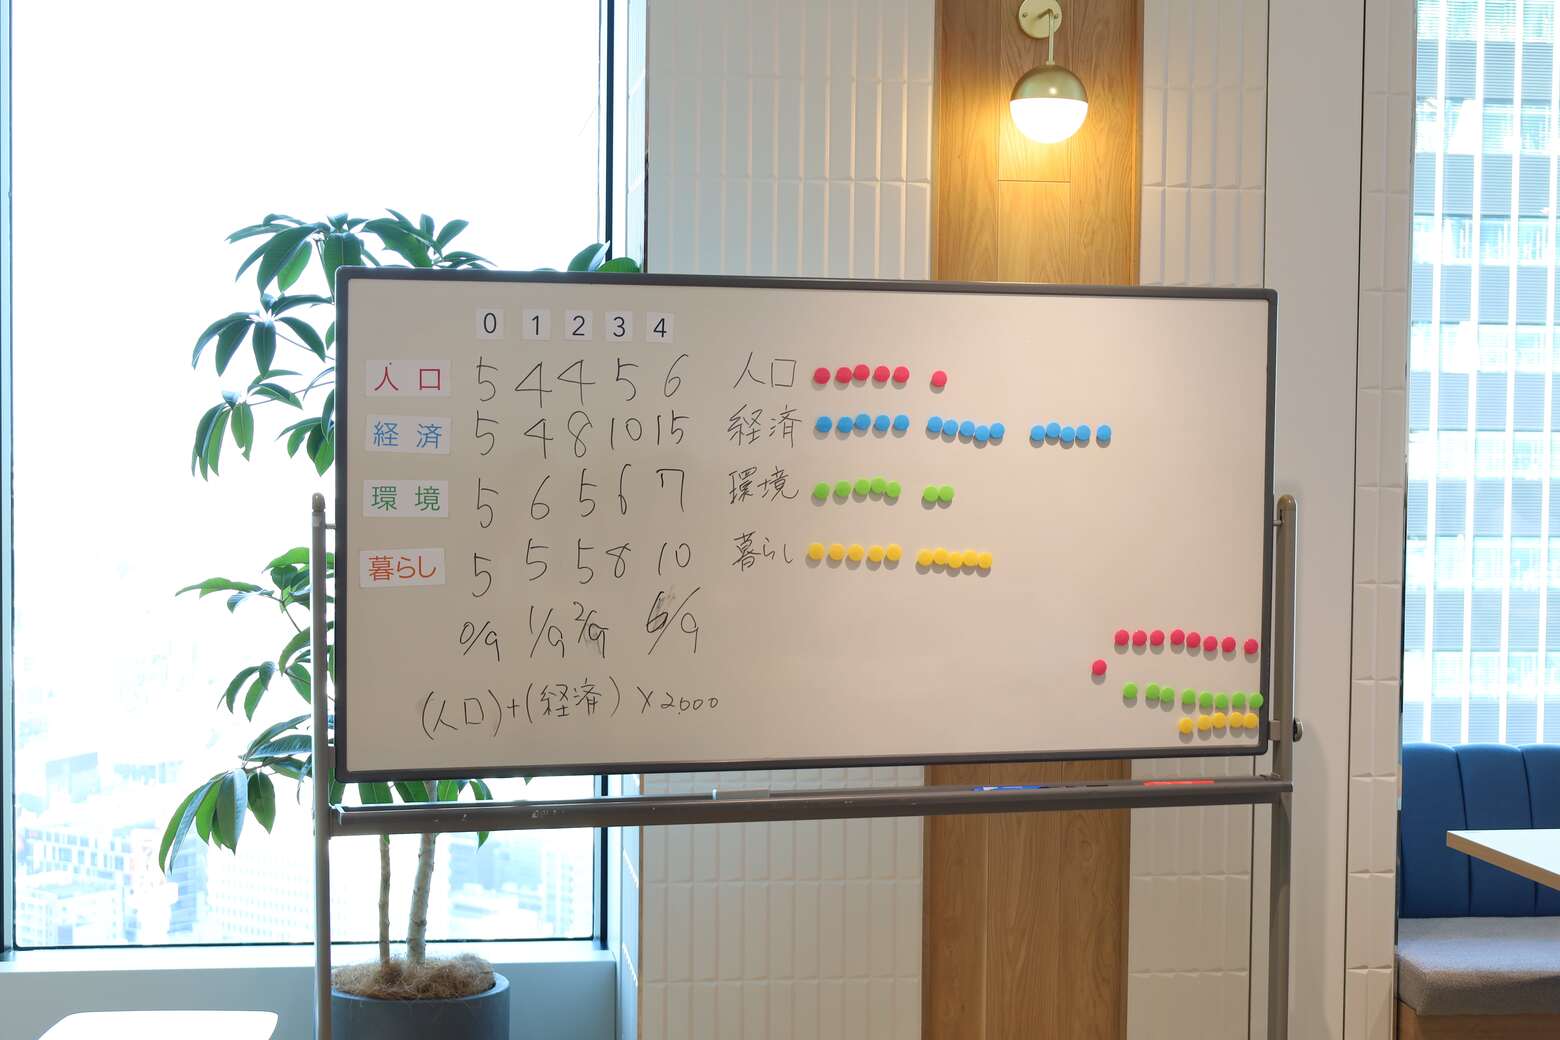 0 1 2 3 4
人口 5 4 4 5 6 人口
経済 5 4 8 10 15 経済
環境 5 6 5 6 7 環境
暮らし 5 5 5 8 10 暮らし
0/9 1/9 2/9 6/9
(人口)+(経済)×2,000